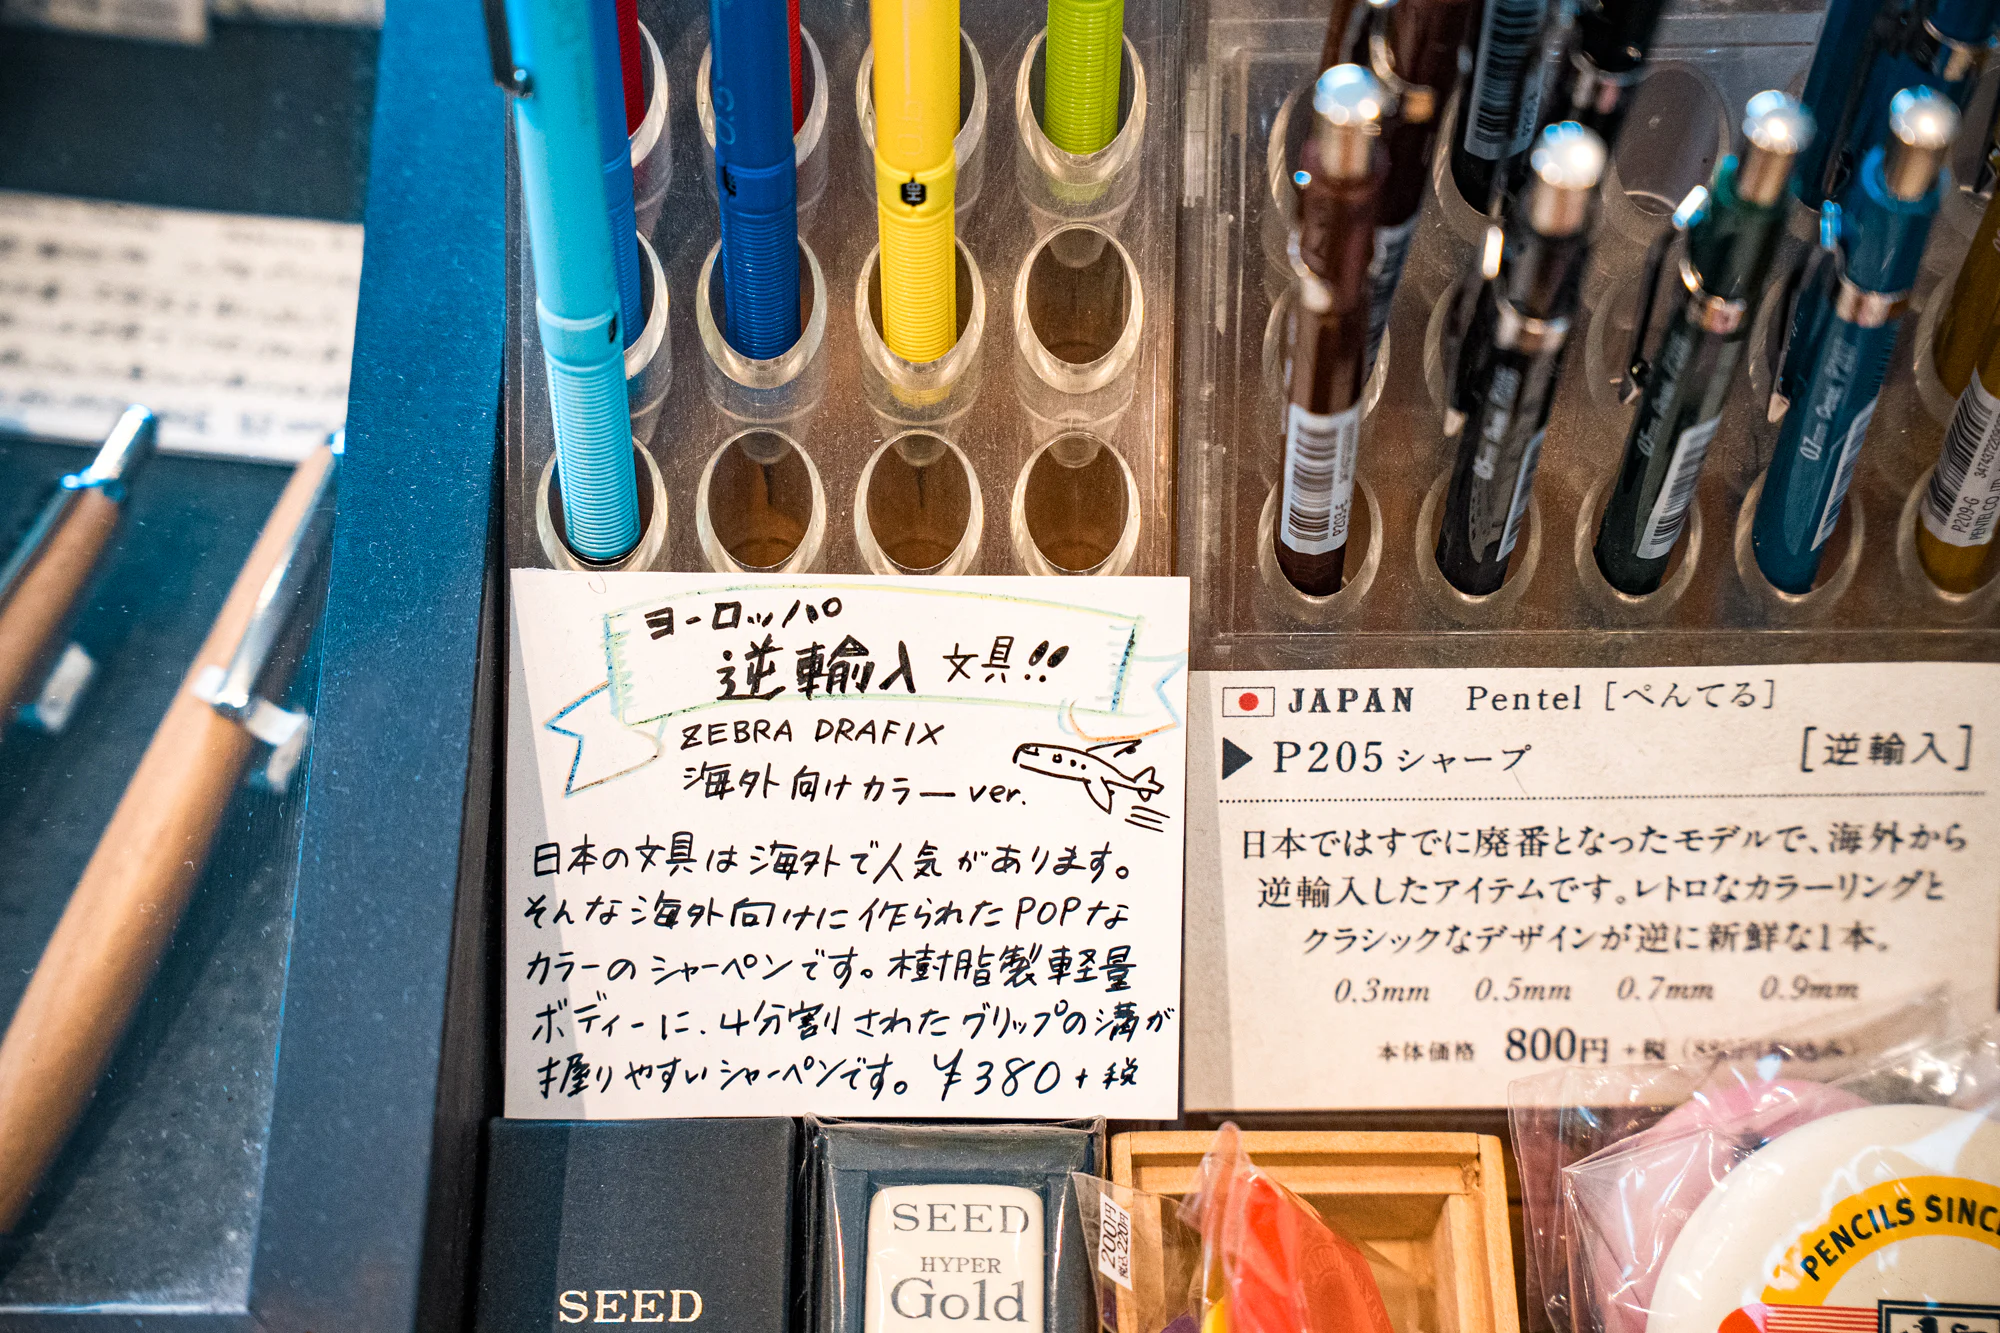 0.5
HB
ヨーロッパ
逆輸入 文具!!
ZEBRA DRAFIX
海外向けカラーver.
日本の文具は海外で人気があります。
そんな海外向けに作られたPOPな
カラーのシャーペンです。樹脂製軽量
ボディーに、4分割されたグリップの溝が
握りやすいシャーペンです。￥380+税
P203-E
05mm Pentel P205
0.7mm Pentel P207
P209-G
PENTEL CO.
JAPAN Pentel [ぺんてる]
▶ P205シャープ [逆輸入]
日本ではすでに廃番となったモデルで、海外から
逆輸入したアイテムです。レトロなカラーリングと
クラシックなデザインが逆に新鮮な1本。
0.3mm 0.5mm 0.7mm 0.9mm
本体価格 800円+税 (880円税込み)
SEED
SEED
HYPER
Gold
200円
税込220円
PENCILS SINC